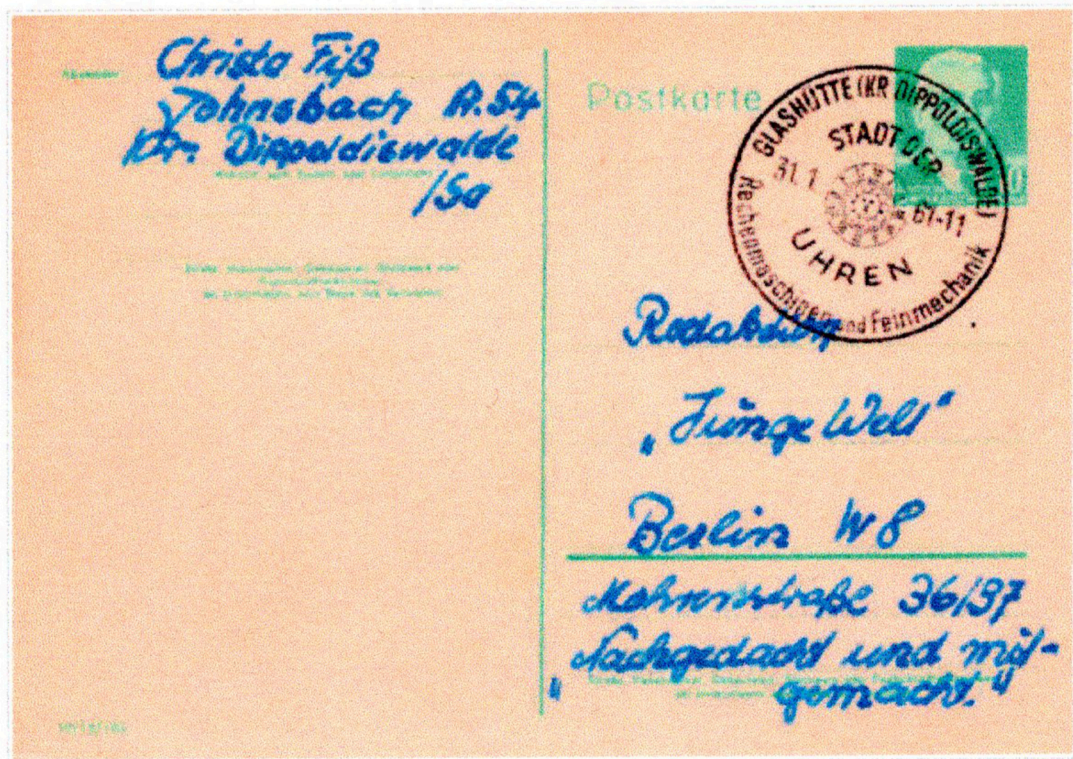 Absender:
Christa Fiß
Johnsbach A.54
Kr. Dippoldiswalde
/Sa
Postkarte
GLASHÜTTE (KR DIPPOLDISWALDE)
STADT DER
31.1 61-11
UHREN
Rechenmaschinen und Feinmechanik
Redaktion
„Junge Welt"
Berlin W8
Mohrenstraße 36/37
„Nachgedacht und mit-
gemacht."